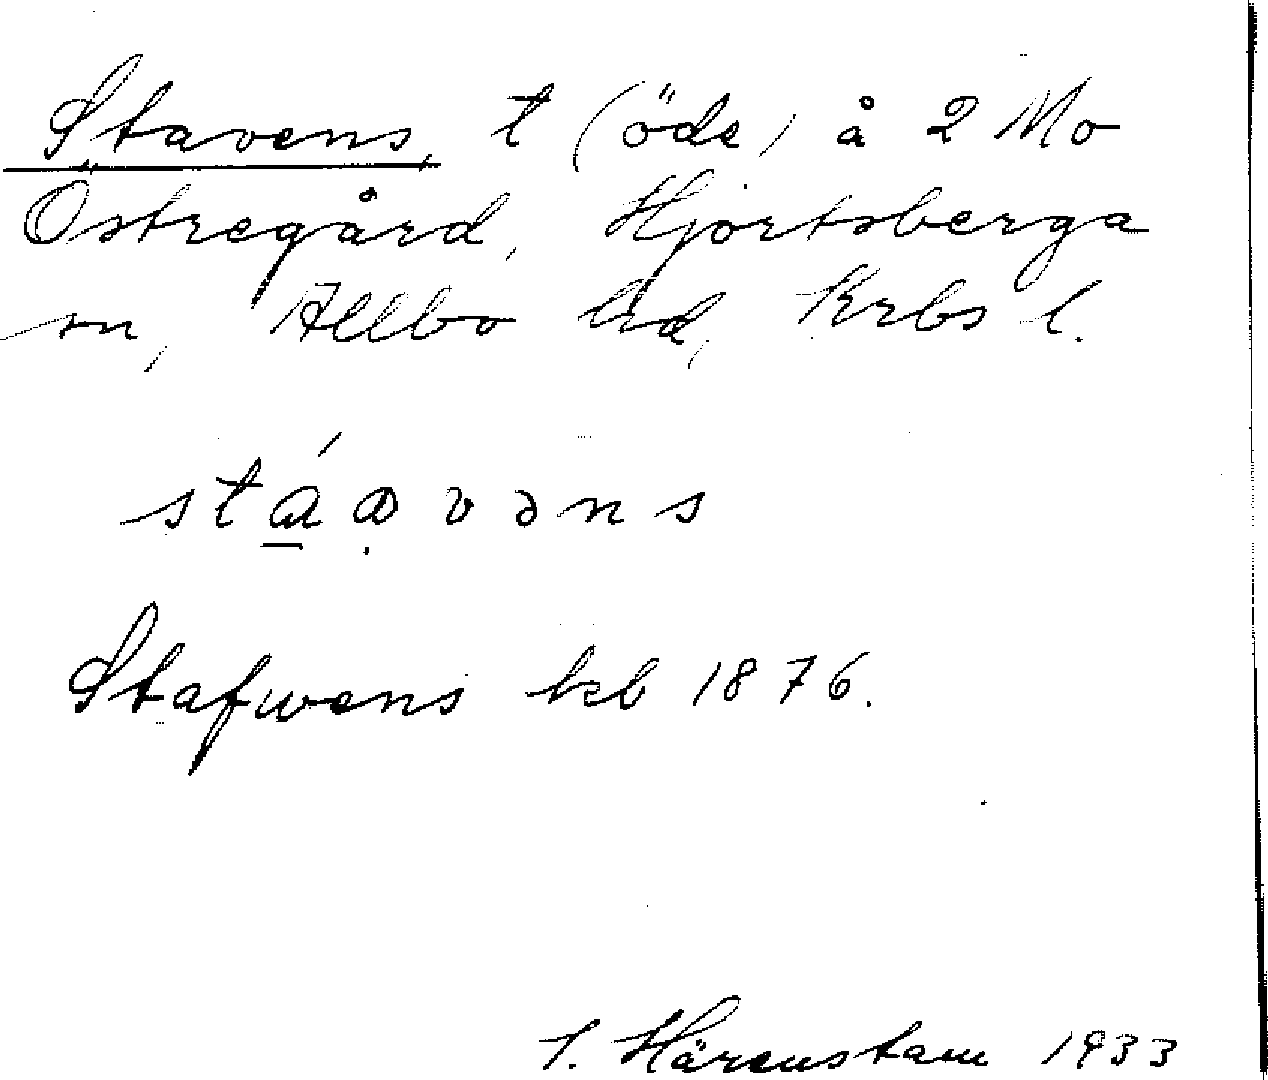 Stavens, t (öde) å 2 Mo
Östregård, Hjortsberga
sn, Allbo hd, Krbs l.
stá̱ɑ̣vəns
Stafwens kb 1876.
I. Härenstam 1933